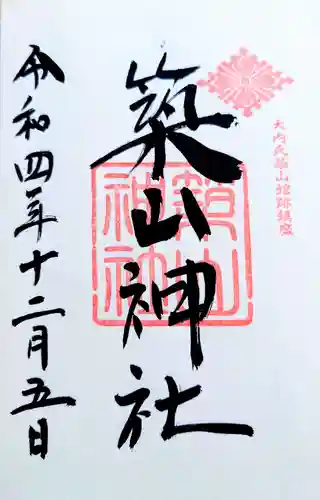 大内氏築山館跡鎮座
築山神社
築山
神社
令和四年十二月五日